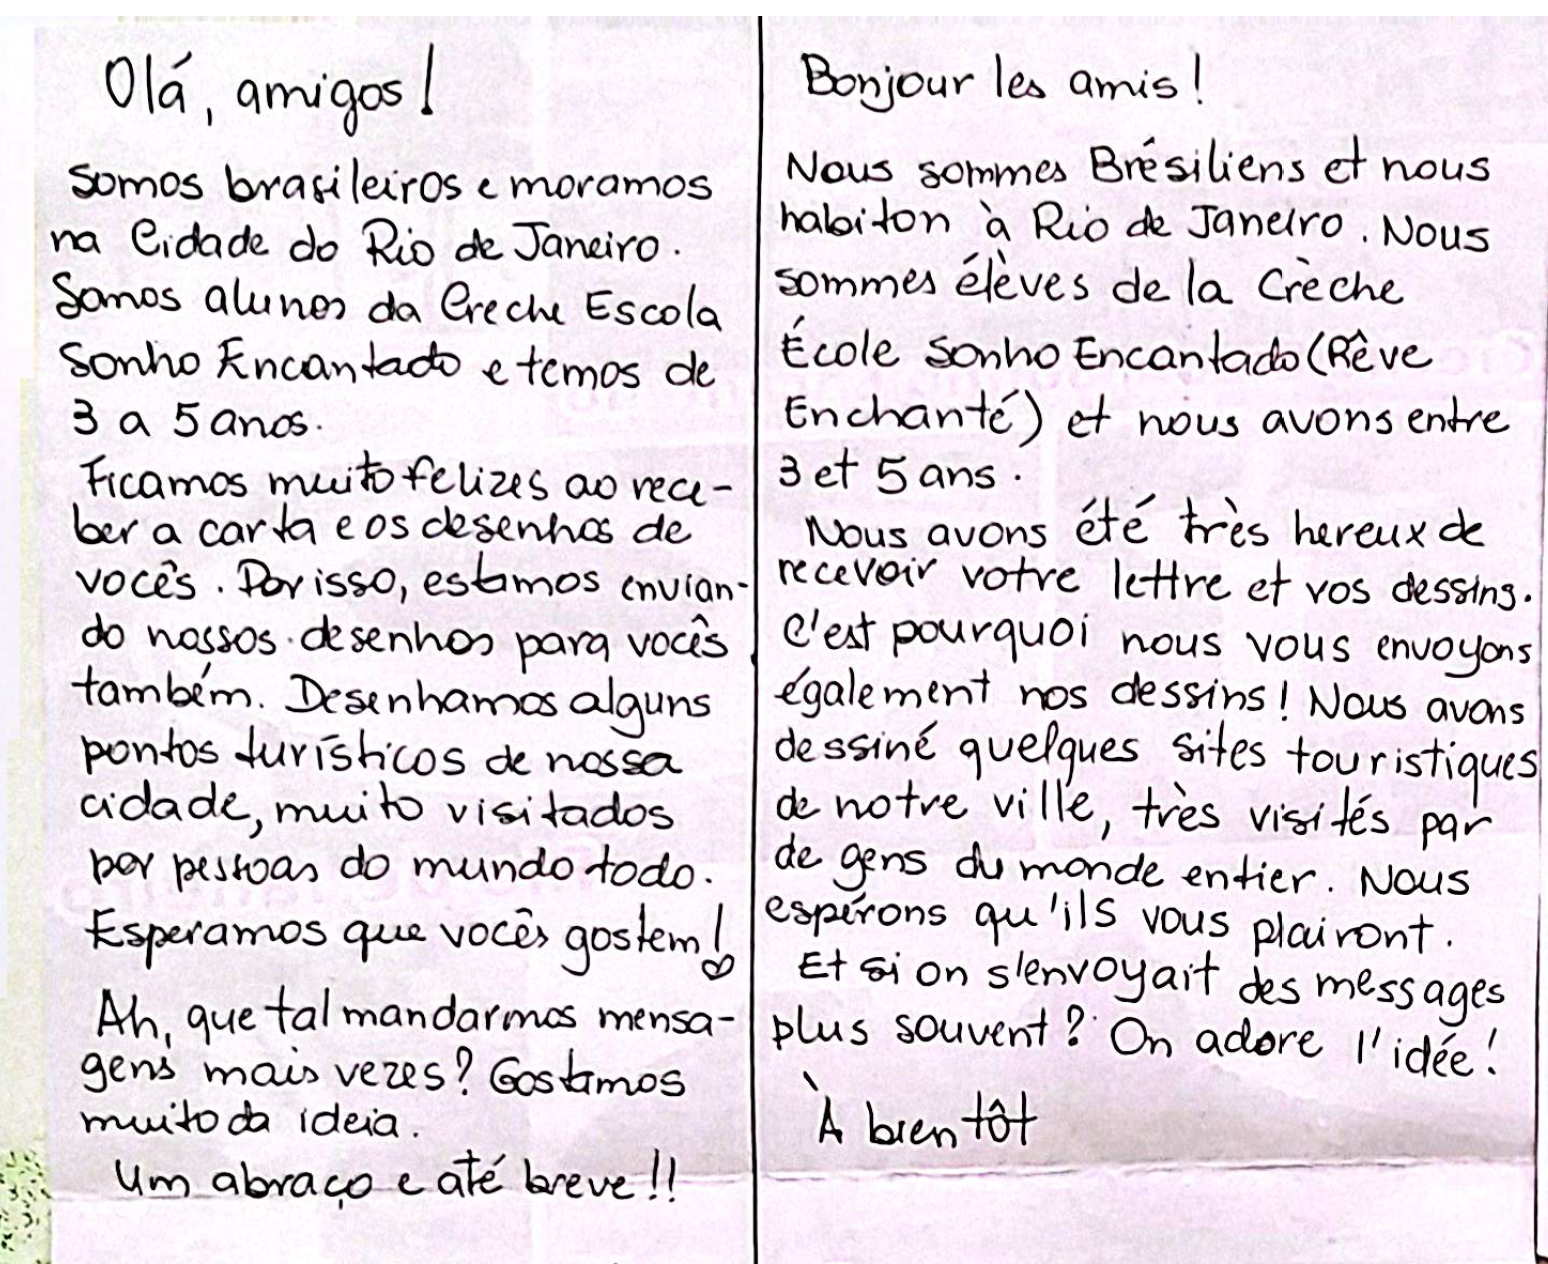 Olá, amigos!
Somos brasileiros e moramos
na Cidade do Rio de Janeiro.
Somos alunos da Creche Escola
Sonho Encantado e temos de
3 a 5 anos.
Ficamos muito felizes ao rece-
ber a carta e os desenhos de
vocês. Por isso, estamos envian-
do nossos desenhos para vocês
também. Desenhamos alguns
pontos turísticos de nossa
cidade, muito visitados
por pessoas do mundo todo.
Esperamos que vocês gostem!
Ah, que tal mandarmos mensa-
gens mais vezes? Gostamos
muito da ideia.
Um abraço e até breve!!
Bonjour les amis!
Nous sommes Brésiliens et nous
habiton à Rio de Janeiro. Nous
sommes élèves de la Crèche
École Sonho Encantado (Rêve
Enchanté) et nous avons entre
3 et 5 ans.
Nous avons été très hereux de
recevoir votre lettre et vos dessins.
C'est pourquoi nous vous envoyons
également nos dessins! Nous avons
dessiné quelques sites touristiques
de notre ville, très visités par
de gens du monde entier. Nous
espérons qu'ils vous plairont.
Et si on s'envoyait des messages
plus souvent? On adore l'idée!
À bientôt